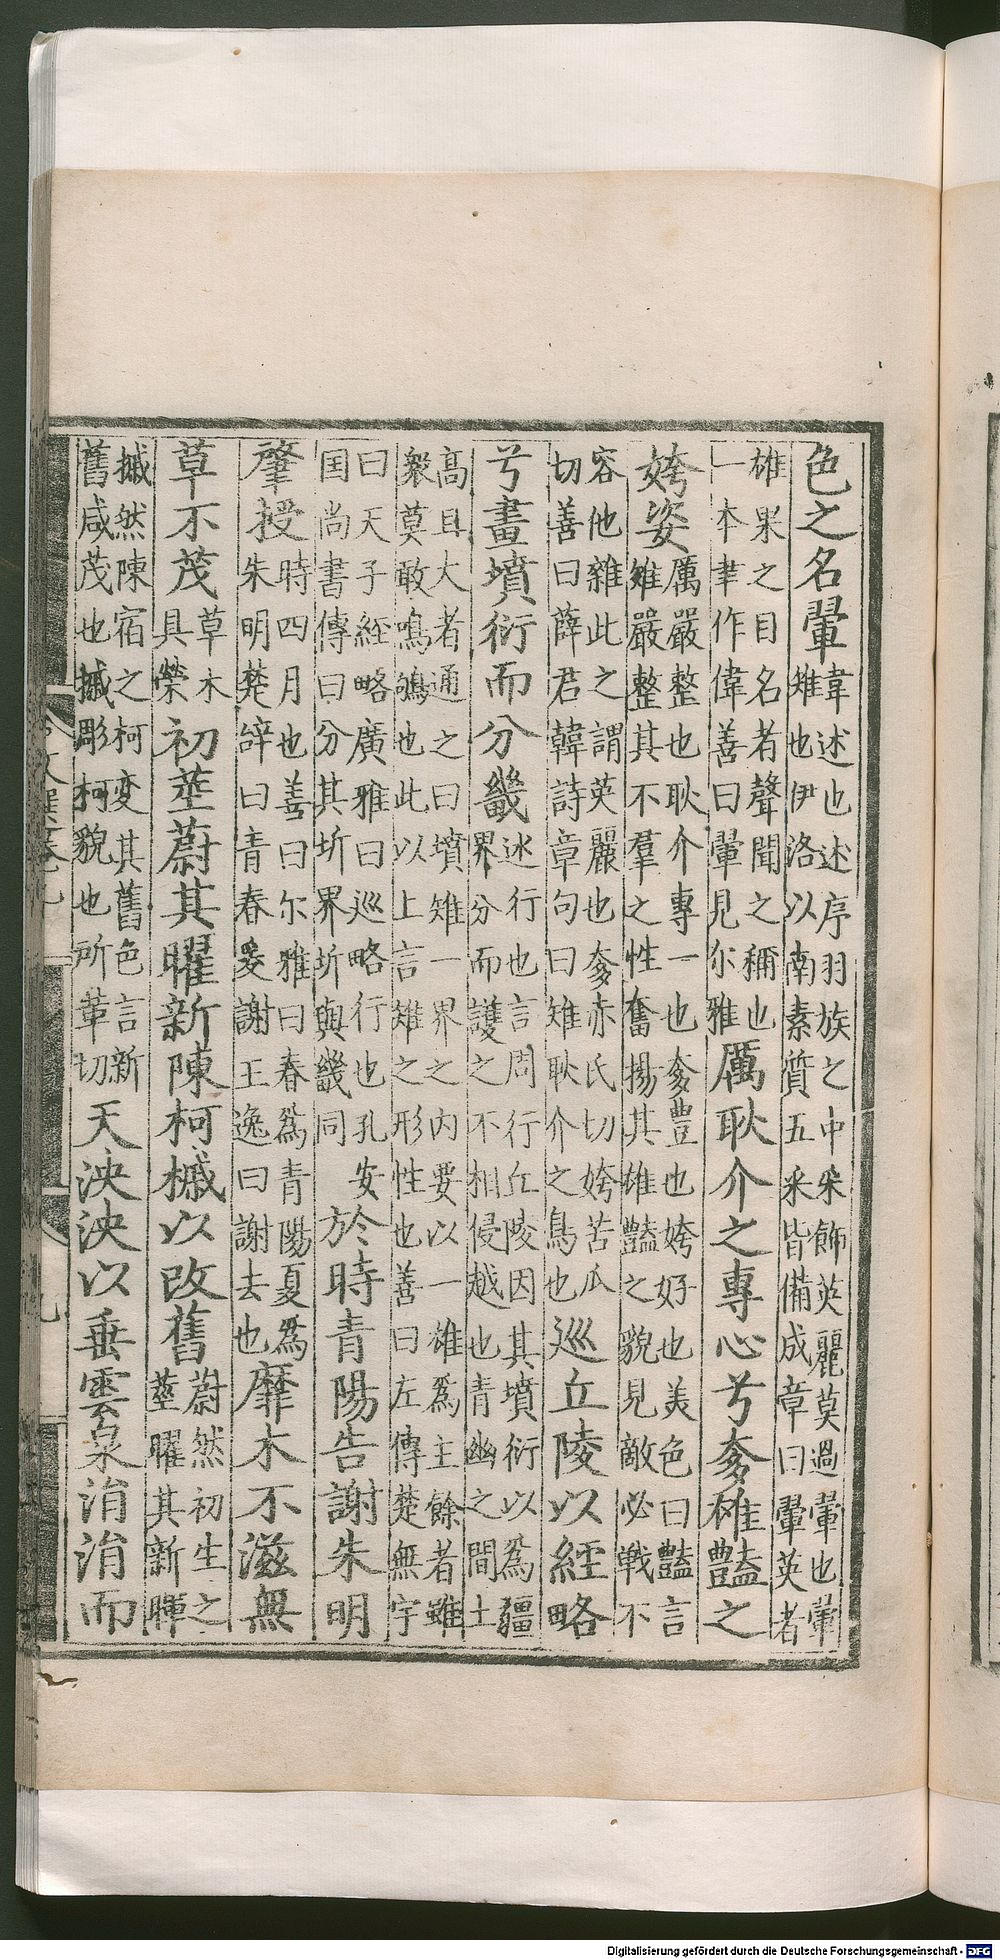 色之名翬聿述也述序羽族之中采飾英麗莫過翬也翬
雉也伊洛以南素質五采皆備成章曰翬英者
雄果之目名者聲聞之稱也
一本聿作偉善曰翬見尔雅厲耿介之專心兮奓雄豔之
姱姿厲嚴整也耿介專一也奓豐也姱好也美色曰豔言
雉嚴整其不羣之性奮揚其雄豔之貌見敵必戰不
容他雜此之謂英麗也奓赤氏切姱苦瓜
切善曰薛君韓詩章句曰雉耿介之鳥也巡丘陵以經略
兮畫墳衍而分畿述行也言周行丘陵因其墳衍以為疆
界分而護之不相侵越也青幽之間土
高且大者通之曰墳雉一界之内要以一雄為主餘者雖
衆莫敢鳴鴝也此以上言雉之形性也善曰左傳楚無宇
曰天子經略廣雅曰巡略行也孔安
国尚書傳曰分其圻界圻與畿同於時青陽告謝朱明
肇授時四月也善曰尔雅曰春為青陽夏為
朱明楚辞曰青春爰謝王逸曰謝去也靡木不滋無
草不茂草木
具榮初莖蔚其曜新陳柯槭以改舊蔚然初生之
莖曜其新暉
槭然陳宿之柯变其舊色言新
舊咸茂也槭彫柯貌也所革切天泱泱以垂雲泉涓涓而
文選卷九
九
Digitalisierung gefördert durch die Deutsche Forschungsgemeinschaft - DFG